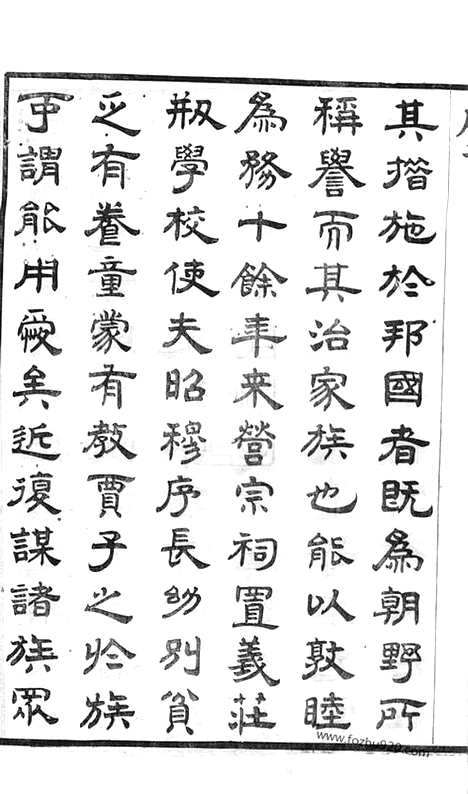 其措施於邦國者既為朝野所
稱譽而其治家族也能以敦睦
為務十餘年来營宗祠置義莊
剏學校使夫昭穆序長幼別貧
乏有養童蒙有教賈子之於族
可謂能用愛矣近復謀諸族眾
www.fozhu920.com